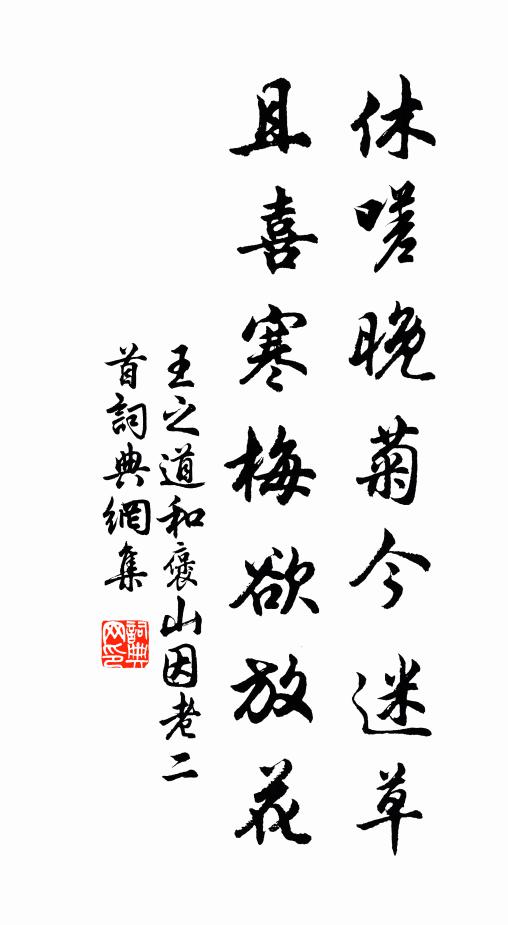 休嗟晚菊今迷草
且喜寒梅欲放花
王之道和褒山因老二
首詞典網集
詞典網印